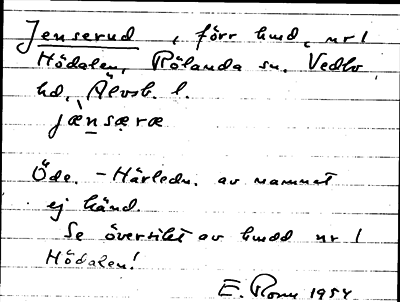 Jenserud, förr hmd, nr 1
Hödalen, Rölanda sn. Vedbo
hd, Älvsb. l.
jæ̀nsæ̣ræ
Öde. - Härledn. av namnet
ej känd.
Se översikt av hmdd nr 1
Hödalen!
E. 1954